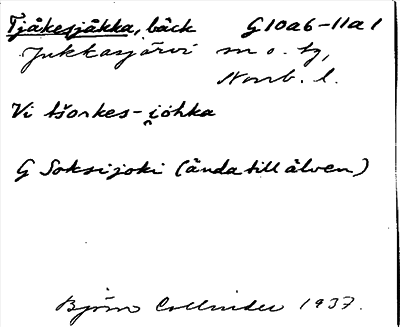 Tjåkesjåkka, bäck G10a6-11a1
Jukkasjärvi sn o. tg,
Norrb. l.
Vi tšoɹkes-i̯ohka
G Soksijoki (ända till älven)
Björn Collinder 1937.